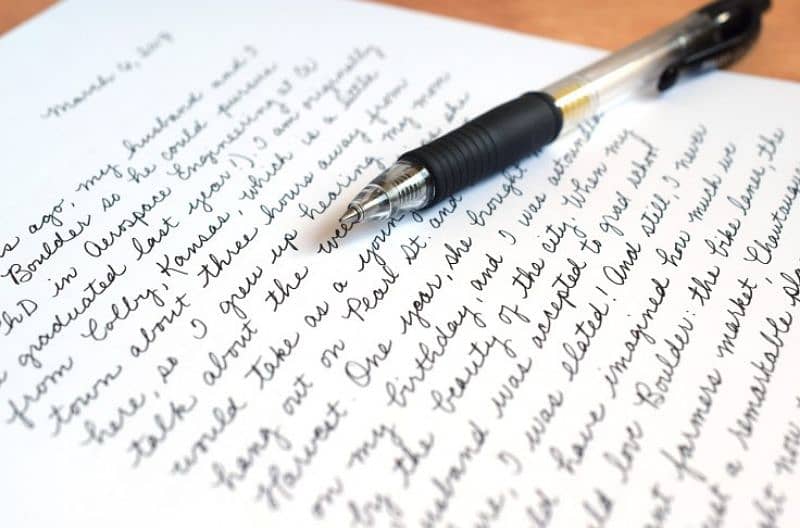 March 6, 2017
s ago, my husband and I
Boulder so he could pursue
PhD in Aerospace Engineering at CU
graduated last year!). I am originally
from Colby, Kansas, which is a little
town about three hours away from
here, so I grew up hearing my mom
talk about the she
would take as a young
hang out on Pearl St. and
Harvest. One year, she brought
on my birthday, and I was astounded
by the beauty of the city. When my
husband was accepted to grad school
I was elated! And still, I never
have imagined how much we
love Boulder: the bike lanes, the
farmers market, Chautauqua
a remarkable
now